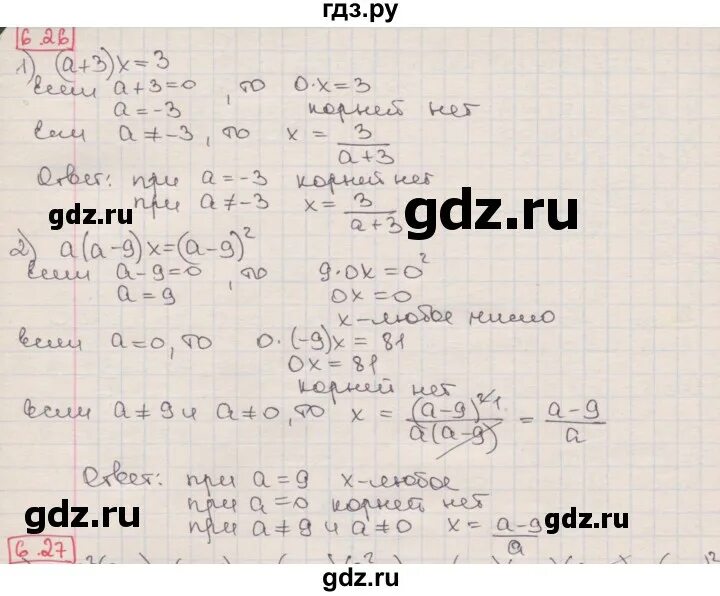 гдз.ру
6.26
1) (a+3)x=3
если a+3=0, то 0·x=3
a=-3 корней нет
если a≠-3, то x = 3/(a+3)
Ответ: при a=-3 корней нет
при a≠-3 x = 3/(a+3)
gdz.ru
gdz.ru
2) a(a-9)x=(a-9)²
если a-9=0, то 9·0x=0²
a=9 0x=0
x-любое число
если a=0, то 0·(-9)x=81
0x=81
корней нет
если a≠9 и a≠0, то x = (a-9)²¹/(a(a-9)) = (a-9)/a
Ответ: при a=9 x-любое
при a=0 корней нет
при a≠9 и a≠0 x = (a-9)/a
gdz.ru
gdz.ru
6.27
gdz.ru